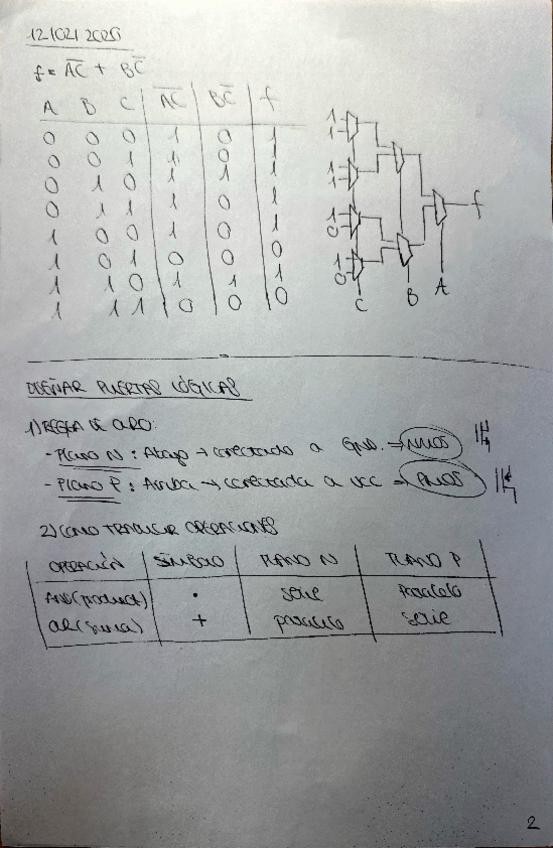 f = A̅C̅ + BC̅
A B C A̅C̅ BC̅ f
0 0 0 1 0 1
0 0 1 1 0 1
0 1 0 1 1 1
0 1 1 1 0 1
1 0 0 1 0 1
1 0 1 0 0 0
1 1 0 1 1 1
1 1 1 0 0 0
1
1
1
1
1
0
1
0
C B A f
DISEÑAR PUERTAS LÓGICAS
1) REGLA DE ORO:
- Plano N: Abajo → conectado a GND. → NMOS
- Plano P: Arriba → conectada a VCC → PMOS
2) COMO TRADUCIR OPERACIONES
OPERACIÓN SÍMBOLO PLANO N PLANO P
AND (product) · serie Paralelo
OR (suma) + paralelo serie
2